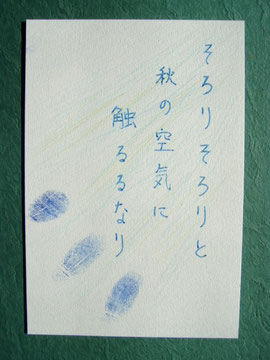 そろりそろりと
秋の空気に
触るるなり